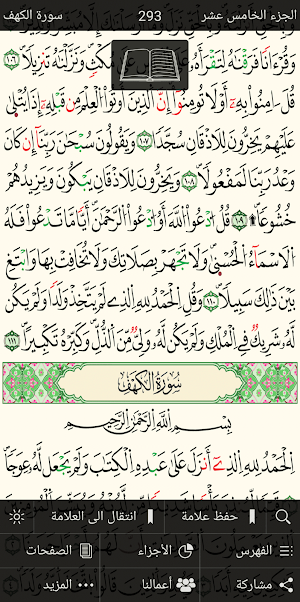 الجزء الخامس عشر 293 سورة الكهف
وَقُرْءَانًا فَرَقْنَٰهُ لِتَقْرَأَهُ مُكْثٍ وَنَزَّلْنَٰهُ تَنزِيلًا ١٠٦
قُلَ اٰمِنُوا بِهِۦٓ أَوْ لَا تُومِنُوٓا إِنَّ الذِينَ أُوتُوا الْعِلْمَ مِن قَبْلِهِۦٓ إِذَا يُتْلَىٰ
عَلَيْهِمْ يَخِرُّونَ لِلَاذْقَانِ سُجَّدًا ١٠٧ وَيَقُولُونَ سُبْحَٰنَ رَبِّنَآ إِن كَانَ
وَعْدُ رَبِّنَا لَمَفْعُولًا ١٠٨ وَيَخِرُّونَ لِلَاذْقَانِ يَبْكُونَ وَيَزِيدُهُمْ
خُشُوعًا ١٠٩ قُلُ ادْعُوا اللَّهَ أَوُ ادْعُوا الرَّحْمَٰنَ أَيًّا مَّا تَدْعُوا فَلَهُ
الَاسْمَآءُ الْحُسْنَىٰ وَلَا تَجْهَرْ بِصَلَاتِكَ وَلَا تُخَافِتْ بِهَا وَابْتَغِ
بَيْنَ ذَٰلِكَ سَبِيلًا ١١٠ وَقُلِ الْحَمْدُ لِلهِ الذِے لَمْ يَتَّخِذْ وَلَدًا وَلَمْ يَكُن
لَّهُۥ شَرِيكٌ فِے الْمُلْكِ وَلَمْ يَكُن لَّهُۥ وَلِيٌّ مِّنَ الذُّلِّ وَكَبِّرْهُ تَكْبِيرًا ١١١
سُورَةُ الْكَهْفِ
بِسْمِ اللَّهِ الرَّحْمَٰنِ الرَّحِيمِ
الْحَمْدُ لِلهِ الذِےٓ أَنزَلَ عَلَىٰ عَبْدِهِ الْكِتَٰبَ وَلَمْ يَجْعَل لَّهُۥ عِوَجًا
حفظ علامة انتقال الى العلامة
الفهرس الأجزاء الصفحات
مشاركة أعمالنا المزيد